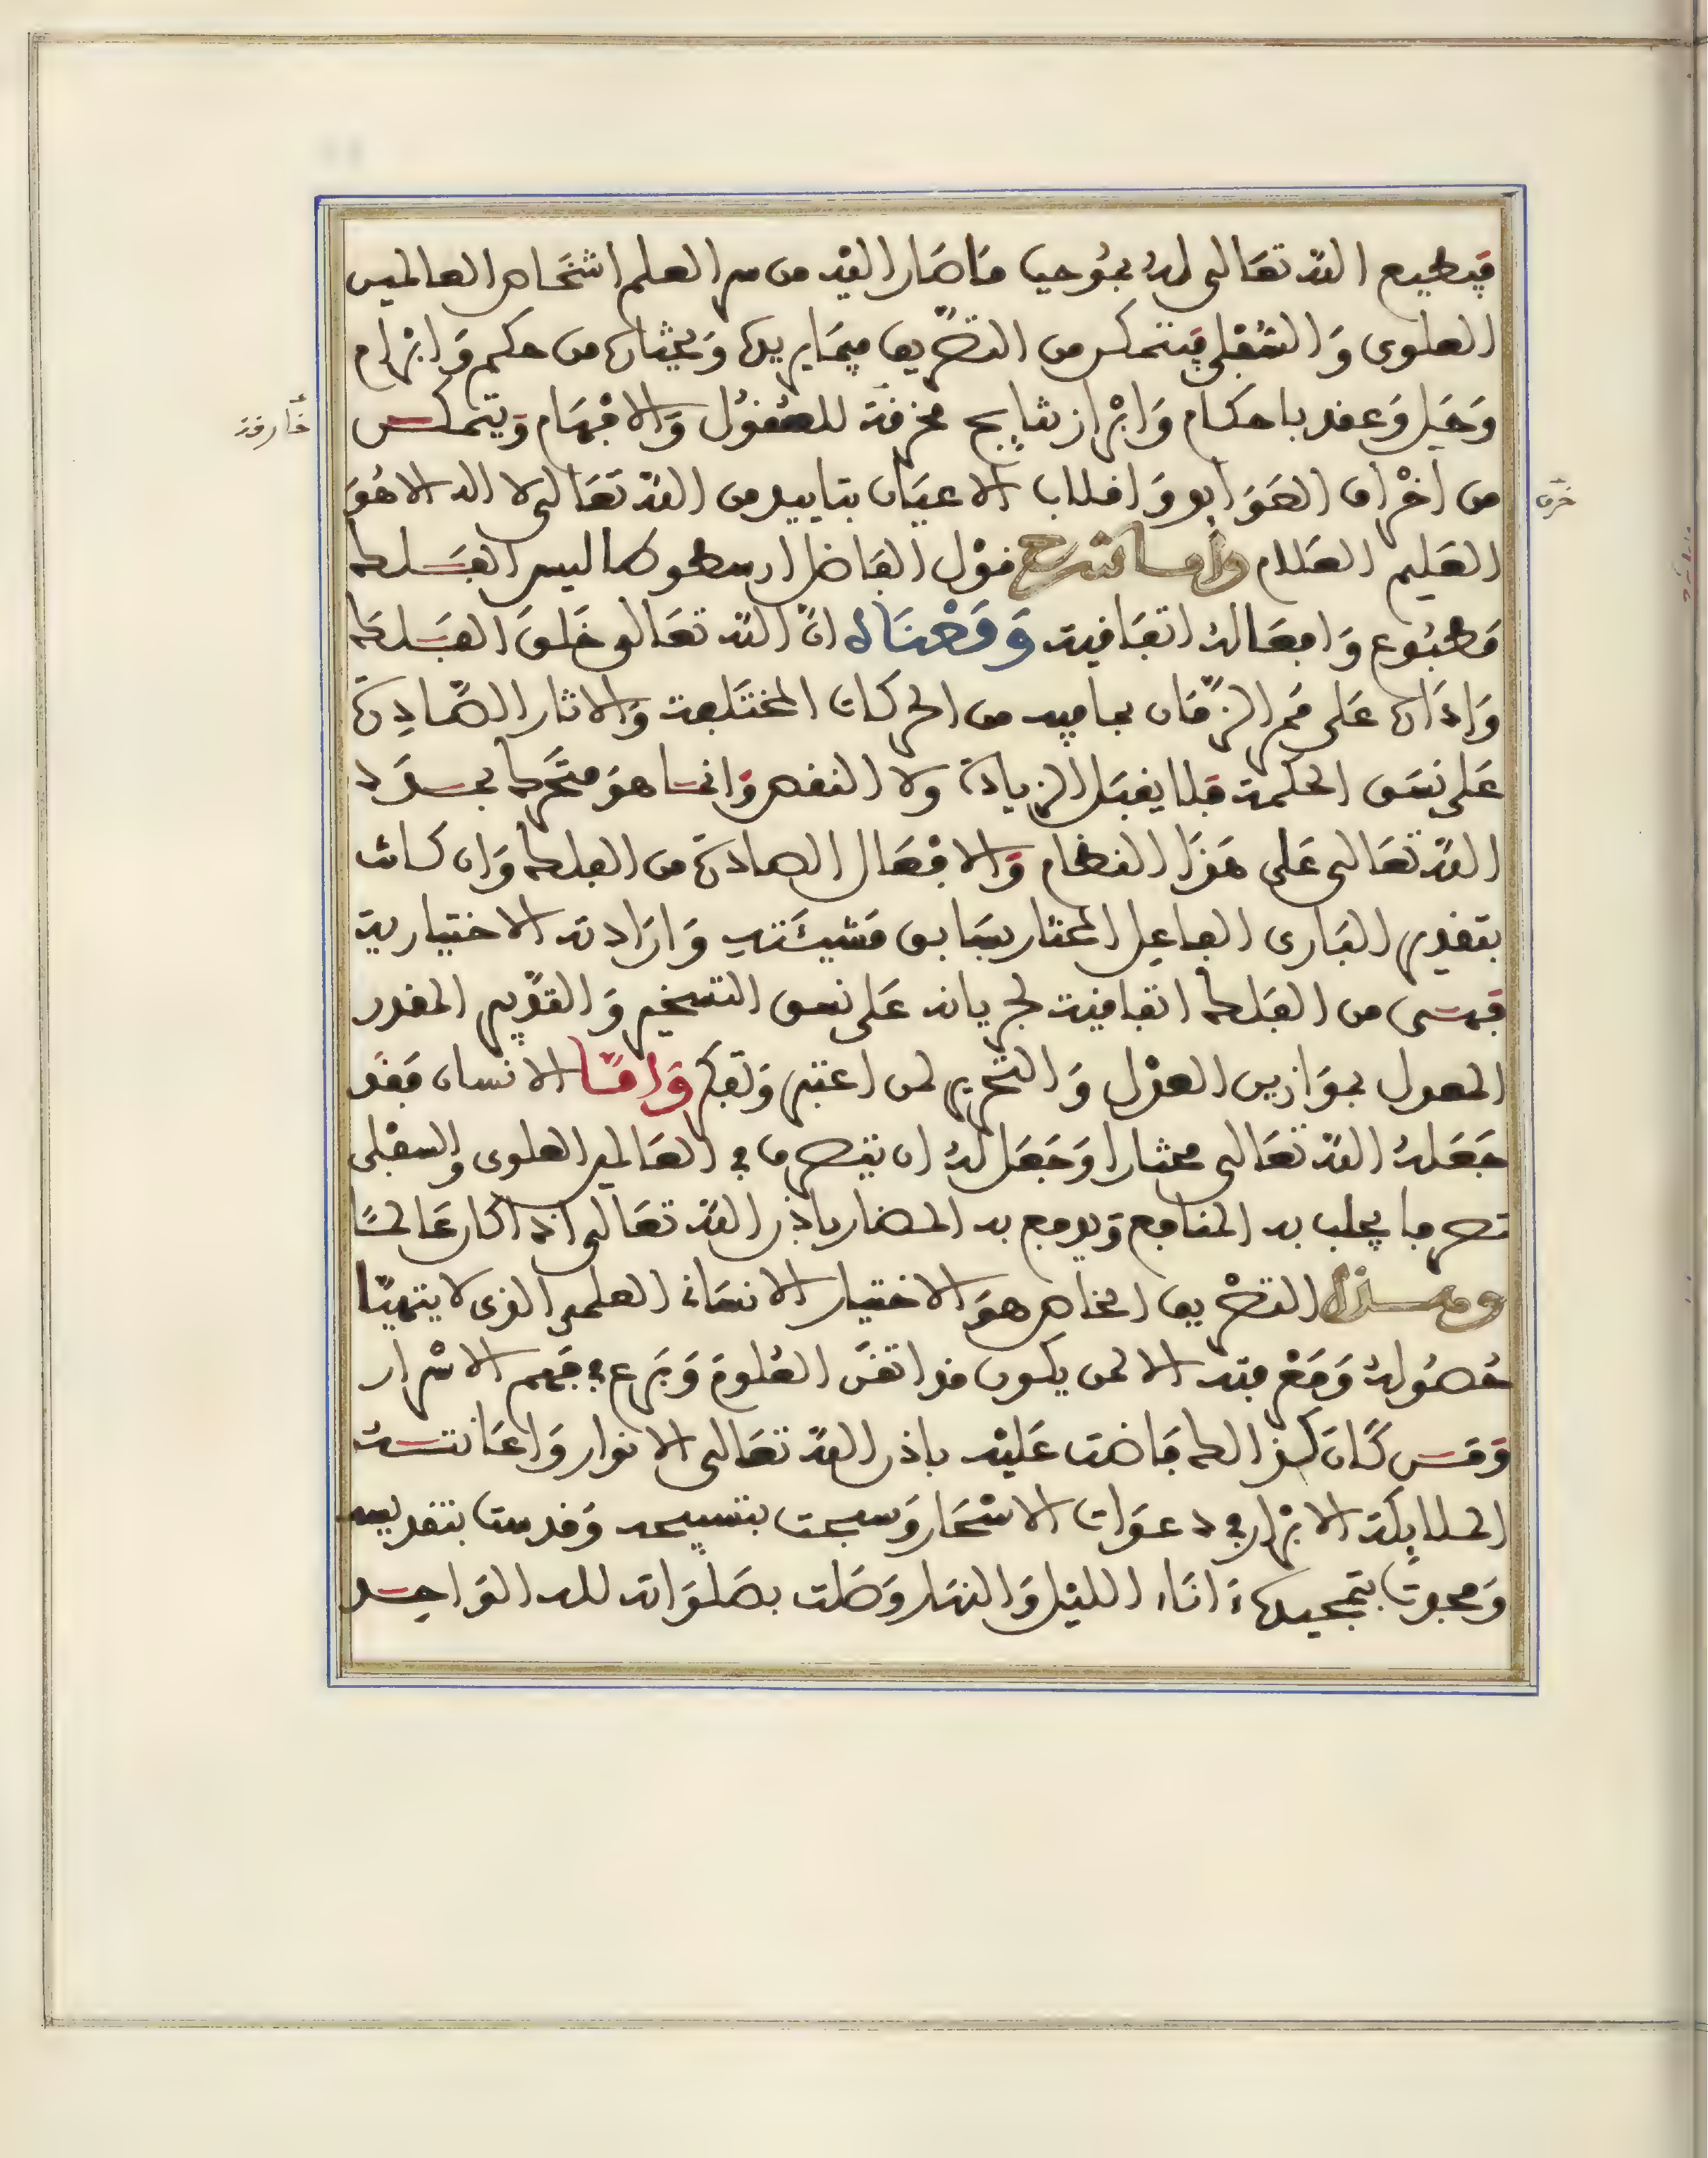 فيطيع الله تعالى له بموجب ما صار اليه من سر العلم اشخاص العالمين
العلوى وَالسُّفلى فيتمكن من التصَّريف فيمَا يريده وَيختاره من حكم وَابْرام
وَحَل وَعقد باحكام وَابْراز نتايج مخرقة للعُقُول وَالافْهَام وَيتمكن
خَارقة
من اخْراق العَوَايد وَاقلاب الاعيَان بتاييد من الله تعَالى لا اله الا هُوَ
خرق
العَليم العَلام وأما شرح قوْل الفَاضل ارسطوطاليس الفَلك
مَطبُوع وَافعَاله اتفَاقية وَمَعْنَاه انَّ الله تعَالى خَلقَ الفَلك
وَادَاره عَلى مَمر الزَّمَان بما فيه من الحركات المختَلفة وَالاثار الصَّادِرة
عَلى نسَق الحكمة فلا يقبَل الزيادة ولا النقص وَانما هوَ متحَرك بمـراد
الله تعَالى عَلى هَذَا النظام وَالافْعَال الصادرة من الفلك وَان كانت
بتقدير البَارى الفاعِل المختار بسَابق مَشيئَته وَارَادته الاختيارية
فهى من الفَلك اتفاقية لجريانه عَلى نسق التسخير وَالتقدير المقدر
المعدل بمَوَازين العدْل وَالتحْرير لمن اعتبر وَتفَكر وَامَّا الانسان فقَد
جَعَلهُ الله تعَالى مختارا وَجَعَل لهُ ان يتصرف في العَالم العلوى والسفْلى
تصرفا يجلب به المنافع وَيدفع به المضار باذن الله تعَالى اذا كان عَالمًا
وهـذا التصْريف الخاص هوَ الاختيار الانسَاني العلمى الذى لا يتهيَّا
حُصُوله وَمَعْرفته الا لمن يكون قد اتقنَ العُلومَ وَبَرع في فهم الاسْرار
وَمَن كَانَ كذالك فَاضت عَليْه باذن الله تعَالى الانوار وَاعَانتـهُ
الملايكة الابْرار في دعوَات الاسْحَار وَسبحت بتسبيحه وَقدست بتقديسه
وَمجدت بتمجيده ءَاناء الليْل وَالنهَار وَصَلت بصَلوَاته لله الوَاحِـد